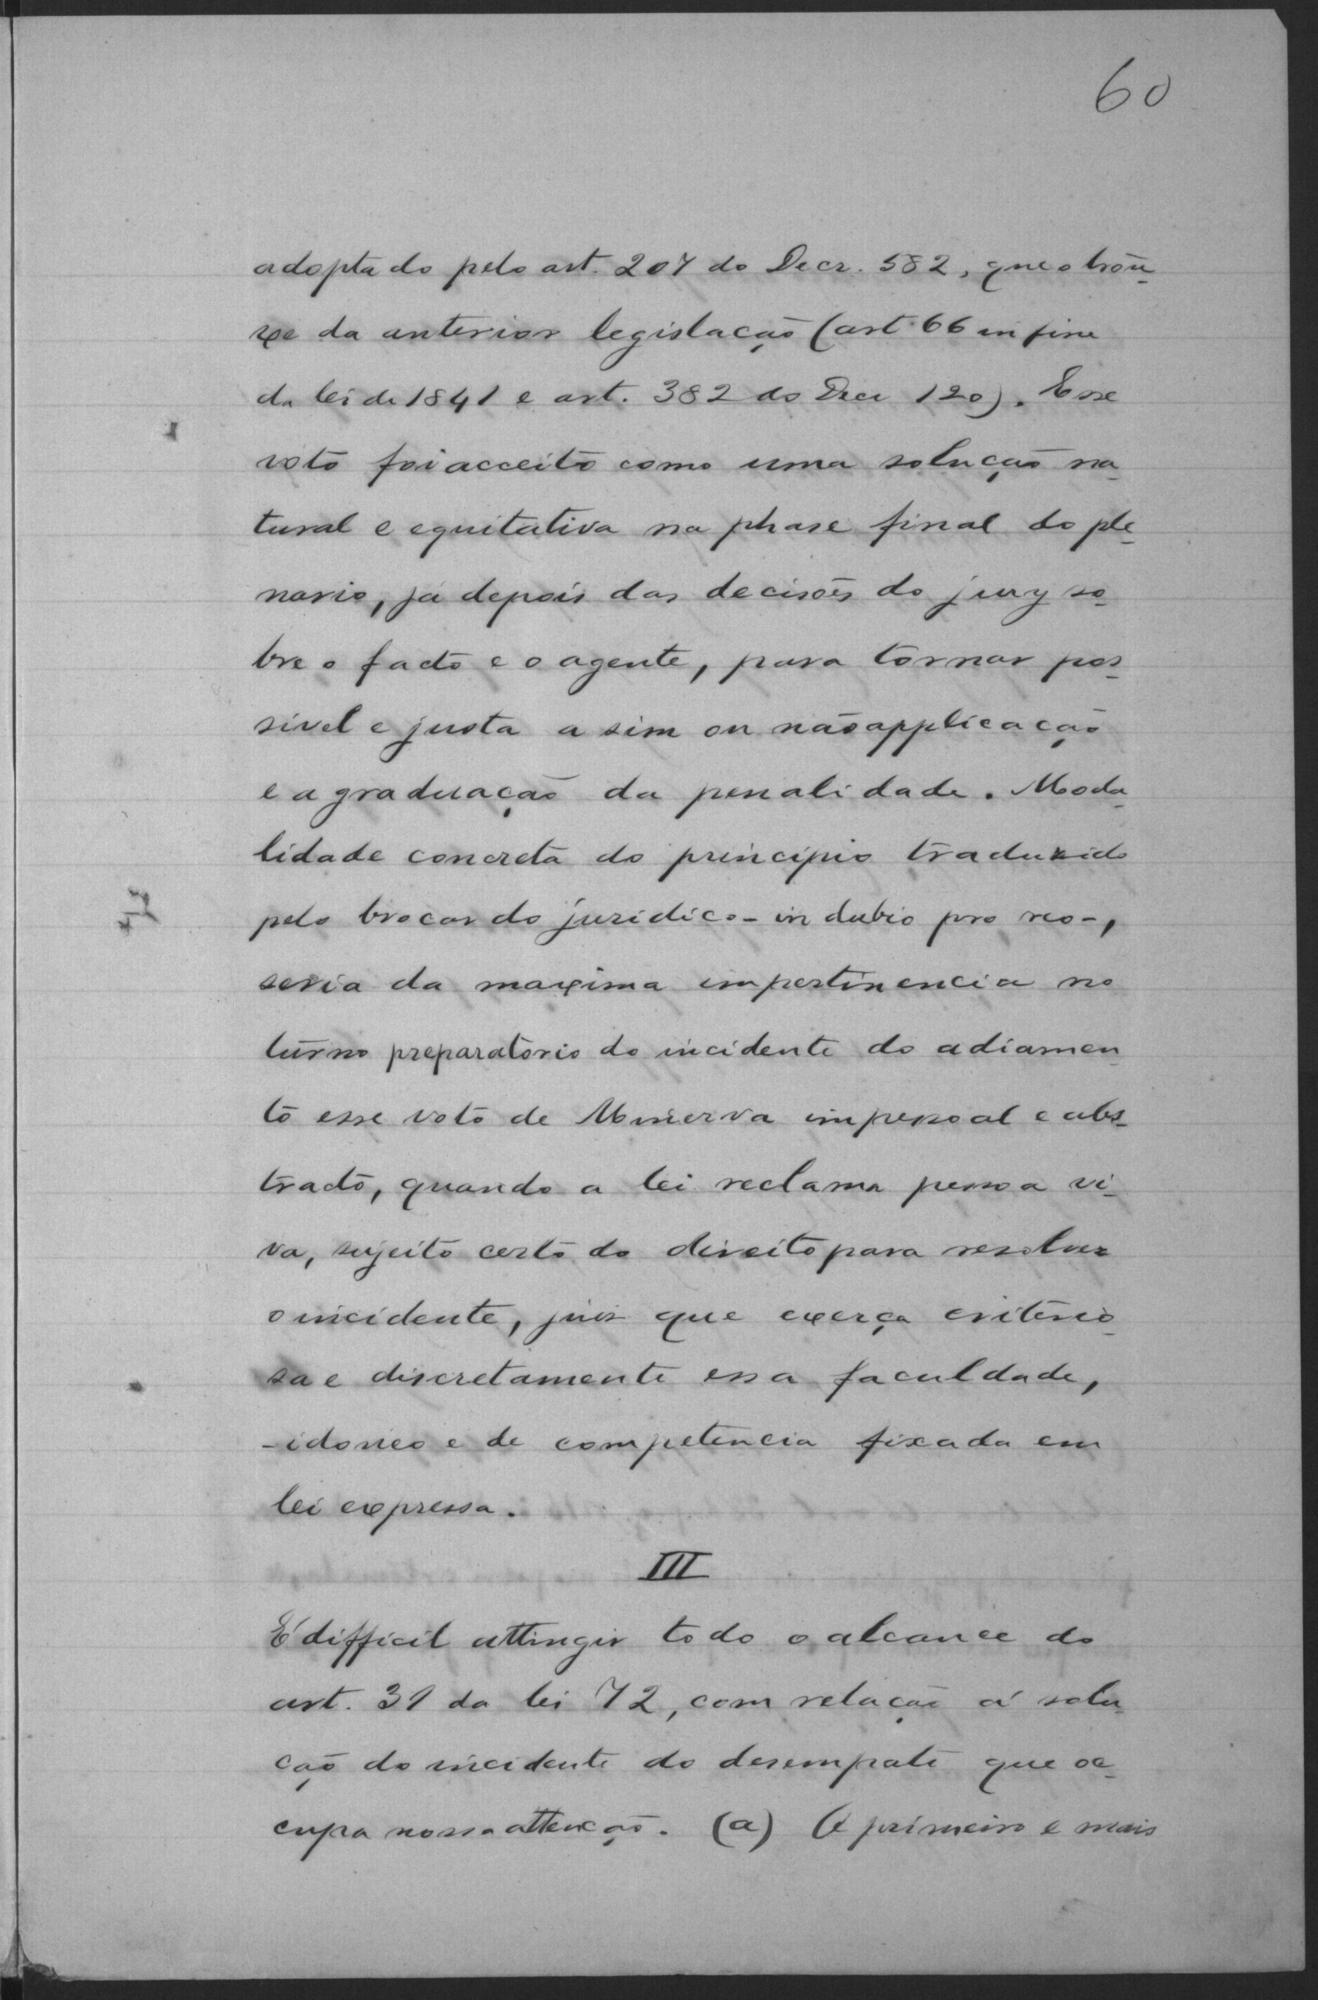 60
adoptado pelo art. 207 do Decr. 582, que o trou-
xe da anterior legislação (art. 66 in fine
da lei de 1841 e art. 382 do Decr 120). Esse
voto foi acceito como uma solução na-
tural e equitativa na phase final do ple-
nario, já depois das decisões do jury so-
bre o facto e o agente, para tornar pos-
sivel e justa a sim ou não applicação
e a graduação da penalidade. Moda-
lidade concreta do principio traduzido
pelo brocardo juridico - in dubio pro reo -,
seria da maxima impertinencia no
turno preparatorio do incidente do adiamen-
to esse voto de Minerva impessoal e abs-
tracto, quando a lei reclama pessoa vi-
va, sujeito certo do direito para resolver
o incidente, juiz que exerça criterio-
sa e discretamente essa faculdade,
- idoneo e de competencia fixada em
lei expressa.
III
É difficil attingir todo o alcance do
art. 31 da lei 72, com relação á solu-
ção do incidente do desempate que oc-
cupa nossa attenção. (a) O primeiro e mais